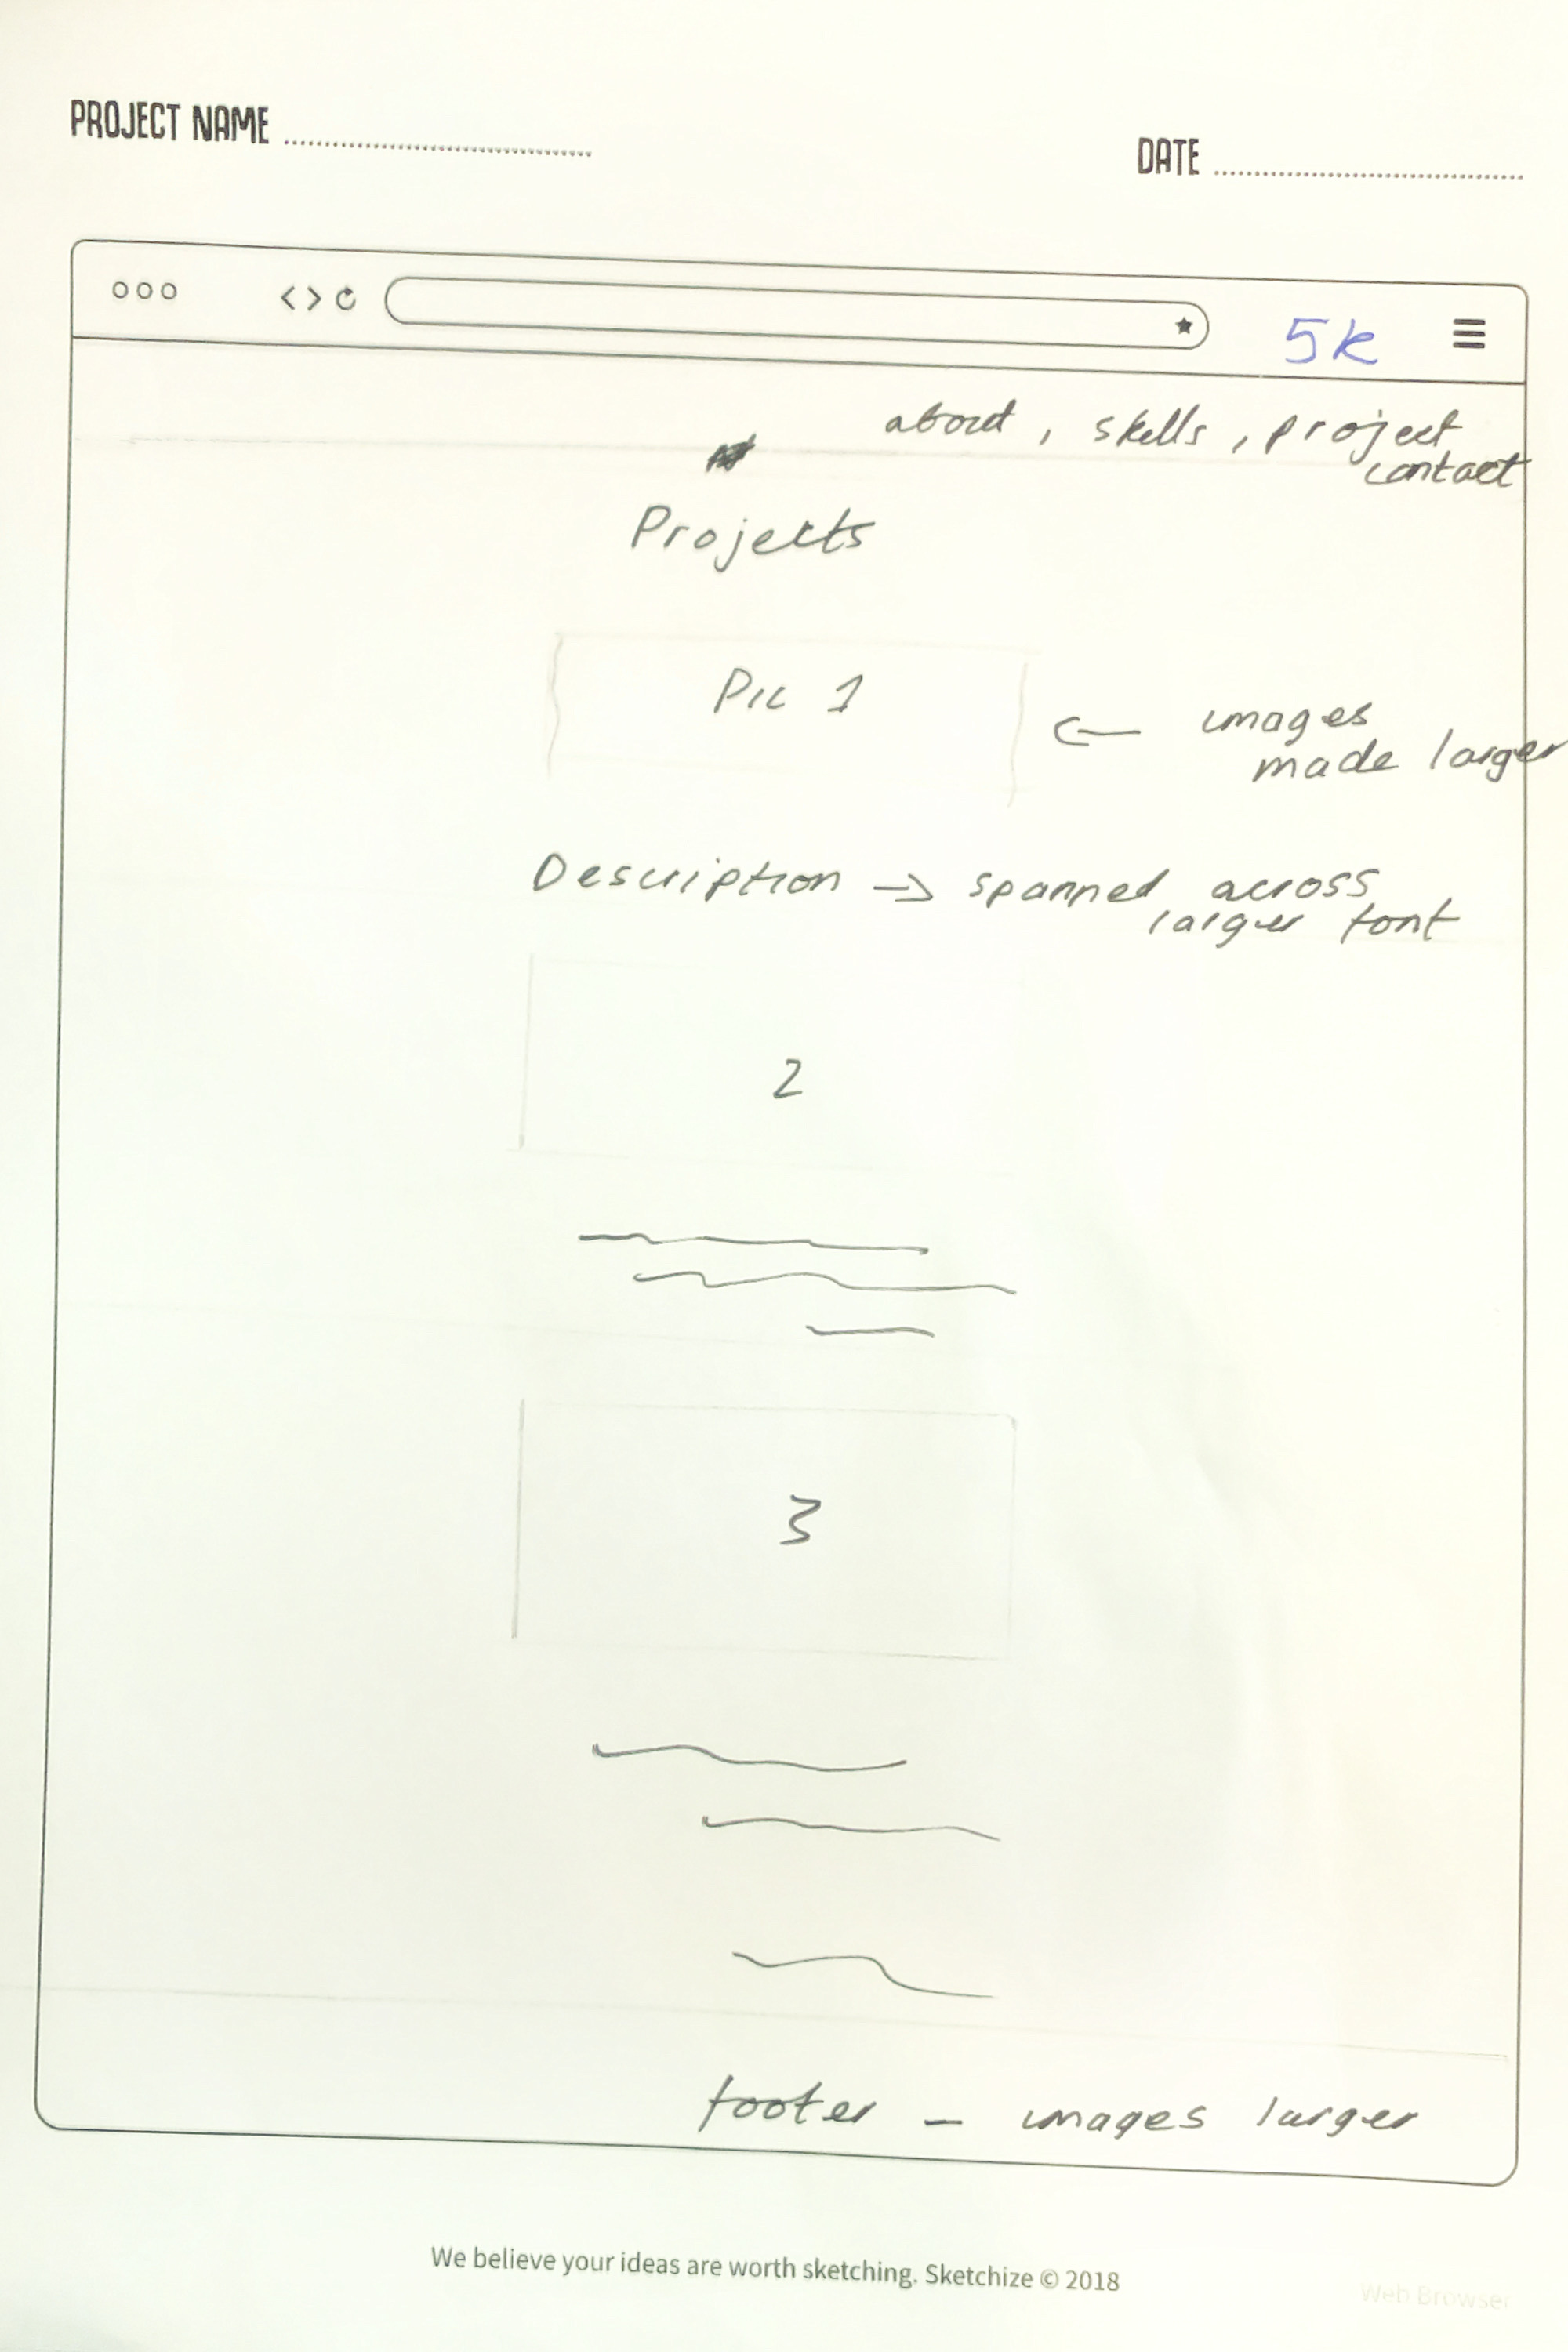 PROJECT NAME
DATE
5k
about, skills, project
contact
Projects
Pic 1
images
made larger
Description → spanned across
larger font
2
3
footer - images larger
We believe your ideas are worth sketching. Sketchize © 2018
Web Browser